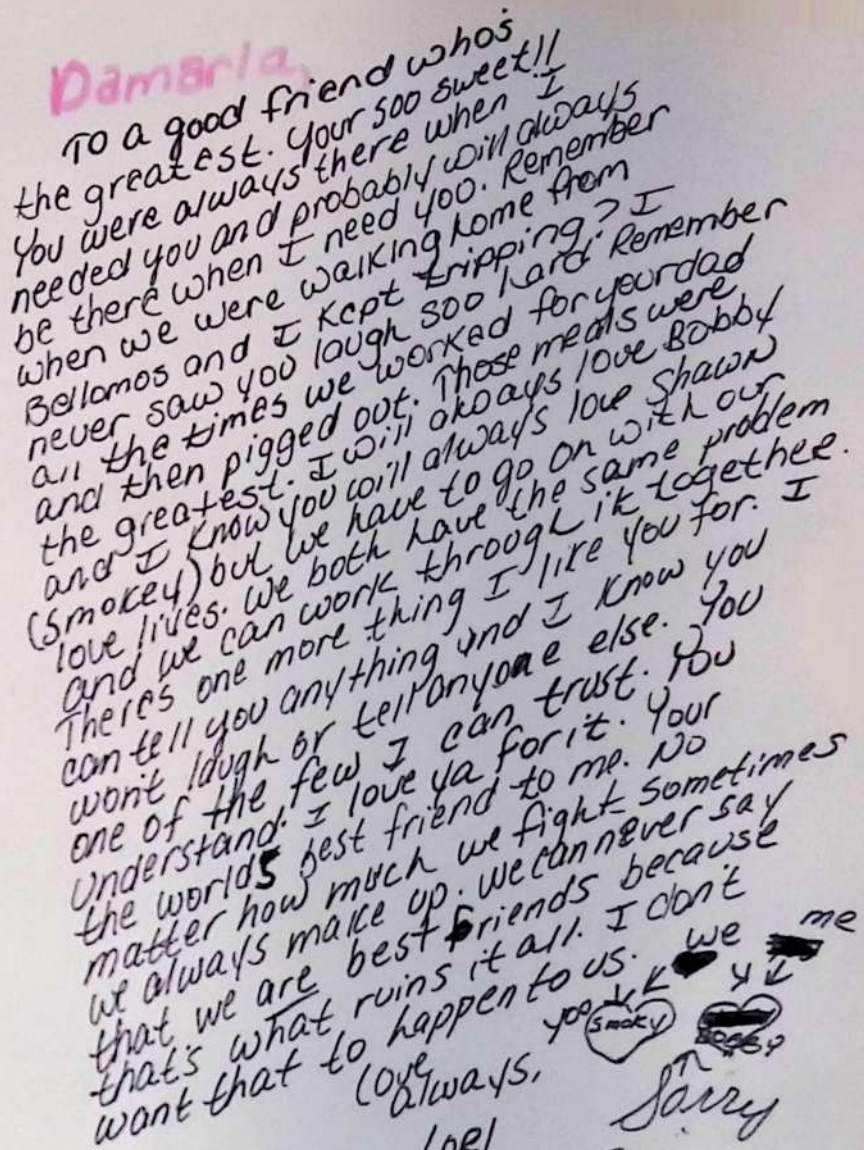 Damarla,
To a good friend who's
the greatest. Your soo sweet!!
You were always there when I
needed you and probably will always
be there when I need you. Remember
when we were walking home from
Bellamos and I kept tripping? I
never saw you laugh soo hard. Remember
all the times we worked for your dad
and then pigged out. Those meals were
the greatest. I will always love Bobby
and I know you will always love Shawn
(Smokey) but we have to go on with our
love lives. We both have the same problem
and we can work through it together.
There's one more thing I like you for. I
can tell you anything and I know you
won't laugh or tell anyone else. You
one of the few I can trust. You
understand. I love ya for it. Your
the worlds best friend to me. No
matter how much we fight sometimes
we always make up. We can never say
that we are best friends because
that's what ruins it all. I don't
want that to happen to us.
Love
always,
we me
you smoky
Sorry